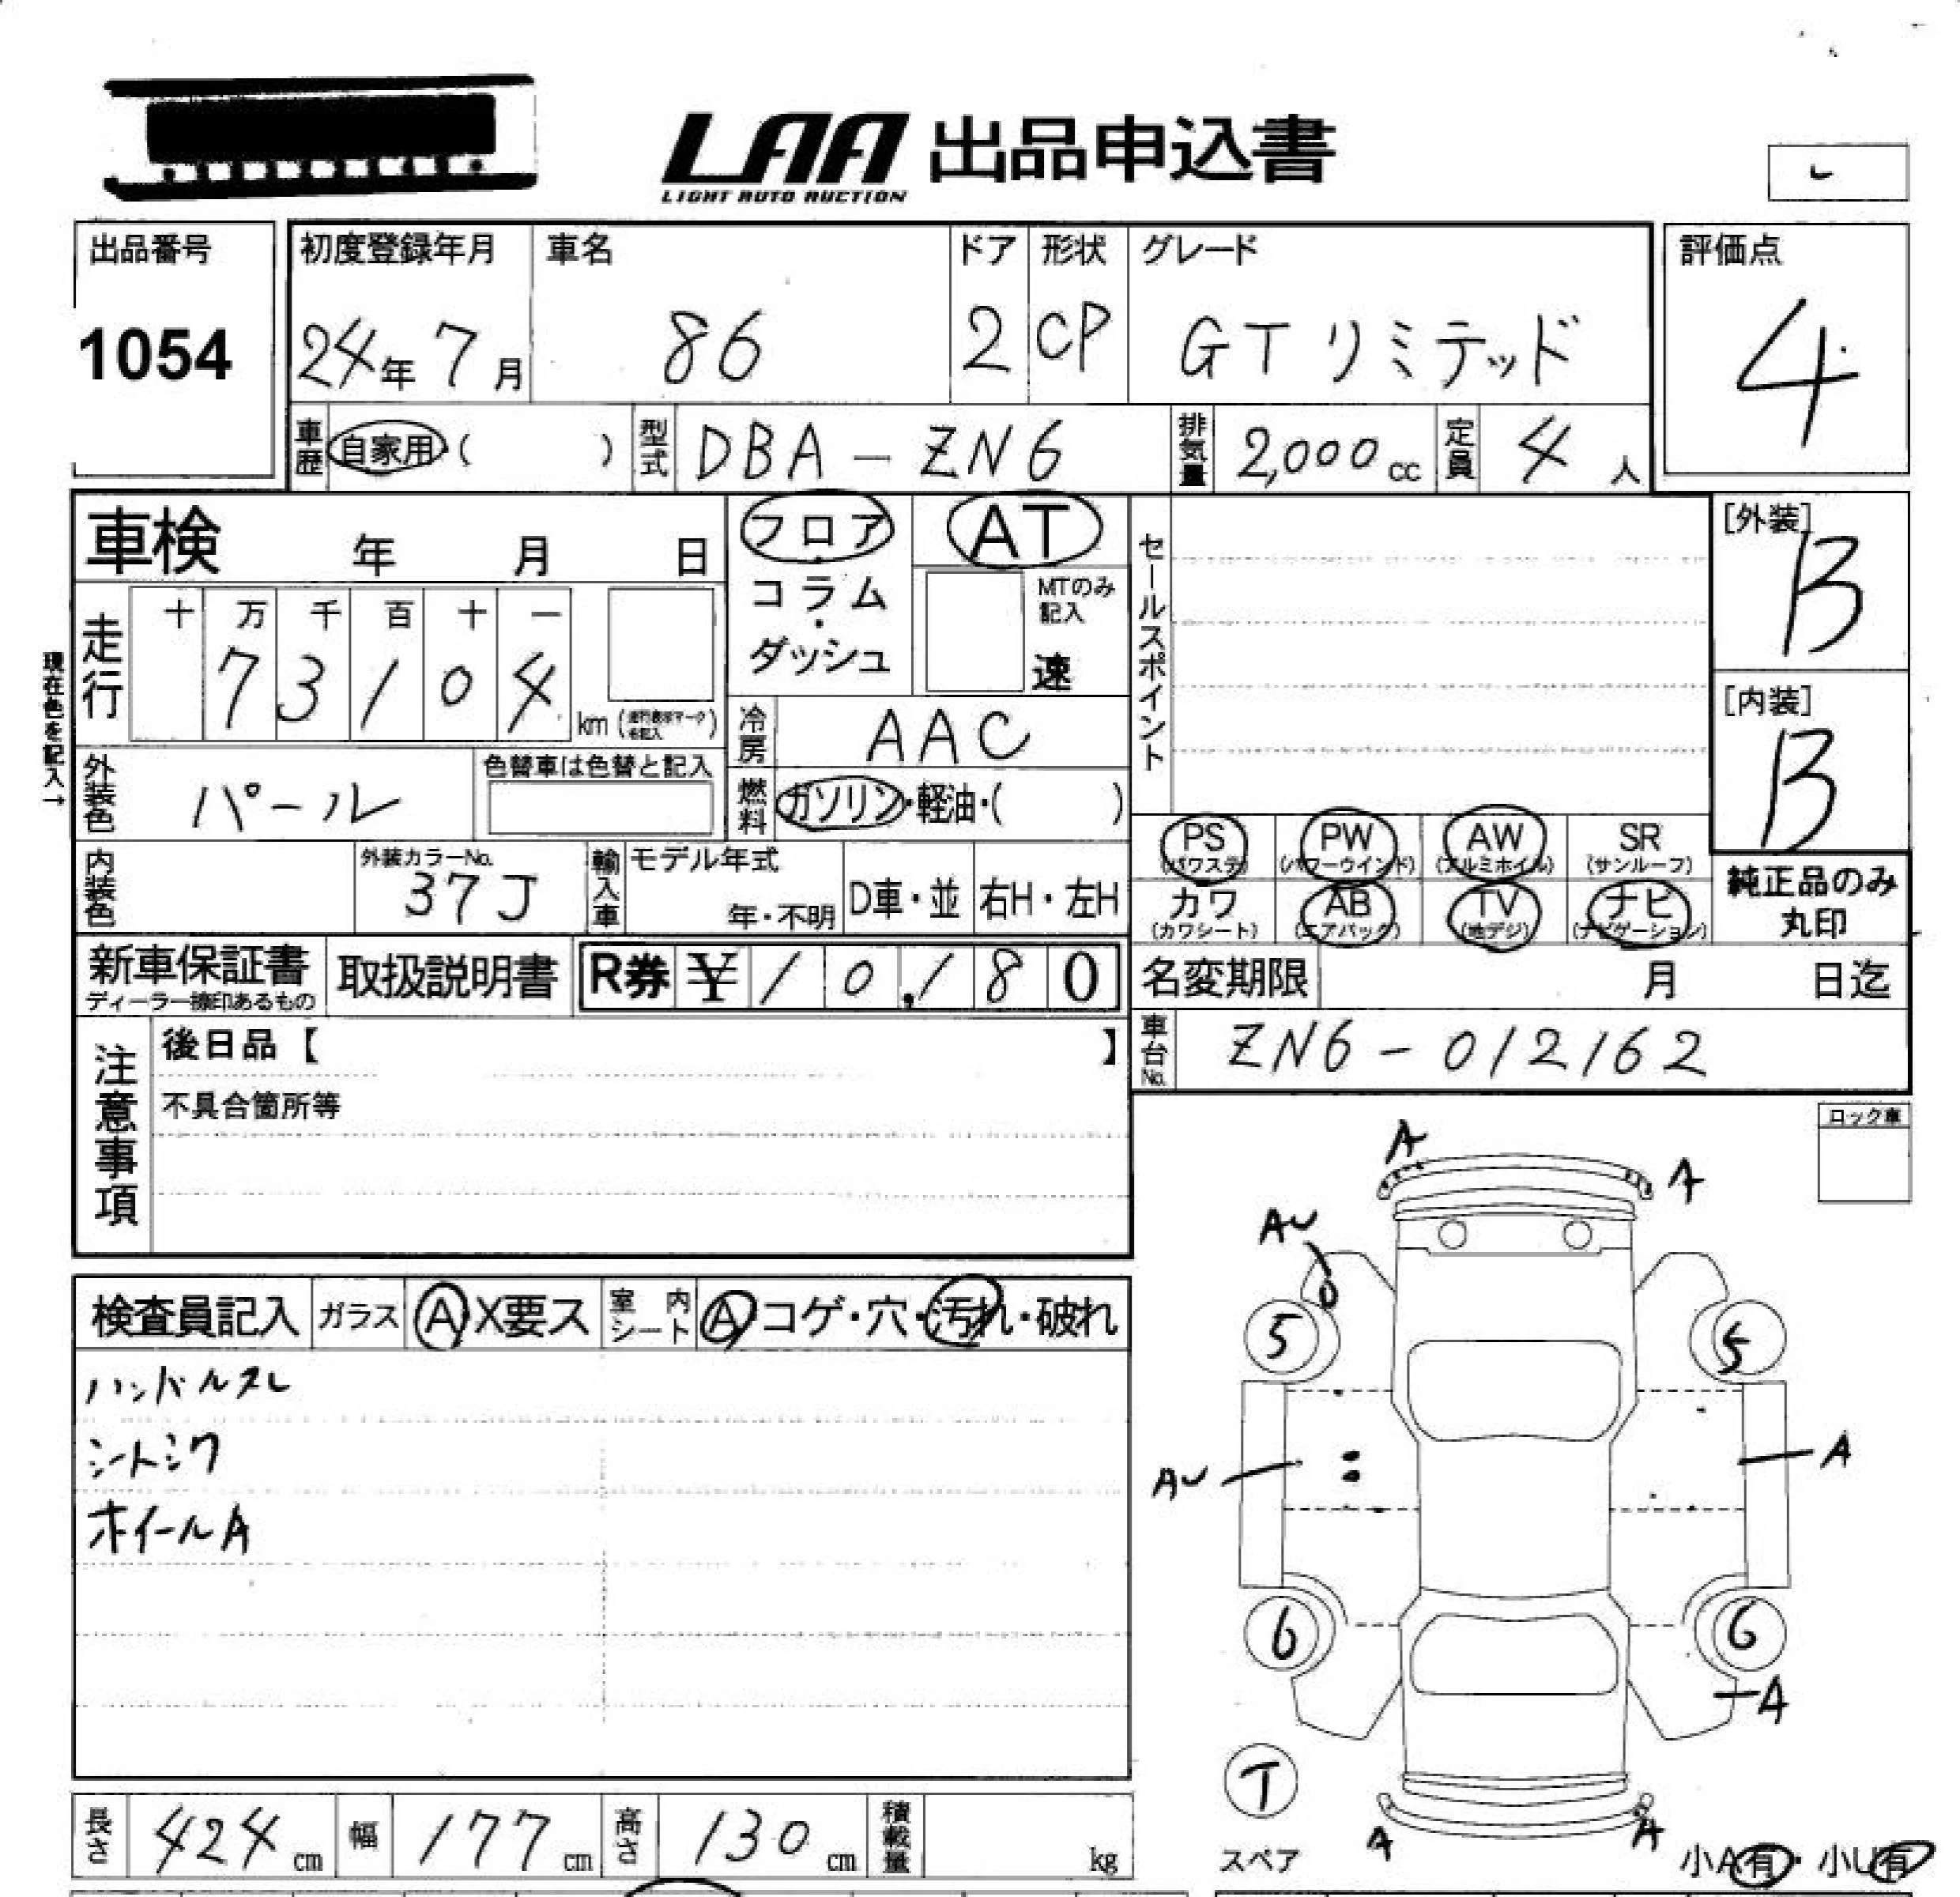 LAA 出品申込書
LIGHT AUTO AUCTION
出品番号
1054
初度登録年月 車名 ドア 形状 グレード
24年 7月 86 2 CP GTリミテッド
評価点
4
車歴 自家用( ) 型式 DBA-ZN6 排気量 2,000cc 定員 4人
車検 年 月 日
フロア・コラム・ダッシュ
AT
MTのみ記入
速
セールスポイント
[外装]
B
[内装]
B
現在色を記入→
走行 十 万 千 百 十 一
7 3 1 0 4 km
冷房 AAC
外装色 パール
色替車は色替と記入
燃料 ガソリン・軽油・( )
PS (パワステ) PW (パワーウインド) AW (アルミホイル) SR (サンルーフ)
カワ (カワシート) AB (エアバック) TV (地デジ) ナビ (ナビゲーション)
純正品のみ丸印
内装色
外装カラーNo.
37J
輸入車 モデル年式
年・不明 D車・並 右H・左H
新車保証書
ディーラー捺印あるもの
取扱説明書
R券 ¥10,180
名変期限 月 日迄
車台No. ZN6-012162
注意事項
後日品【 】
不具合箇所等
ロック車
検査員記入 ガラス A・X要ス 室内シート A コゲ・穴・汚れ・破れ
ハンドルスレ
シートシワ
ホイールA
A
A
AU
5
5
AU
A
6
6
A
T
スペア
A
A
小A有・小U有
長さ 424cm 幅 177cm 高さ 130cm 積載量 kg